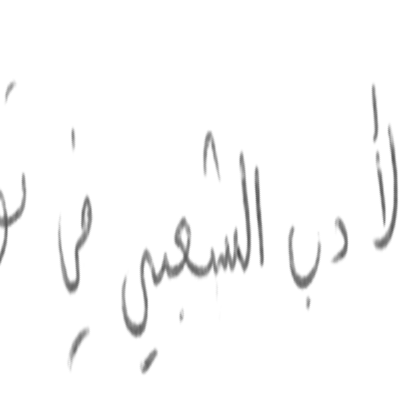 لأدب الشعبي في